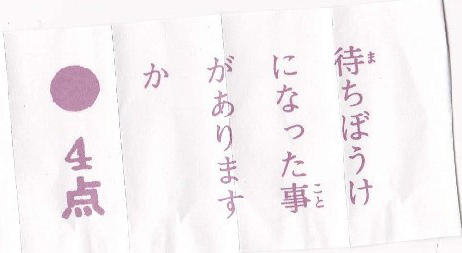 待ちぼうけ
になった事
があります
か
● 4点